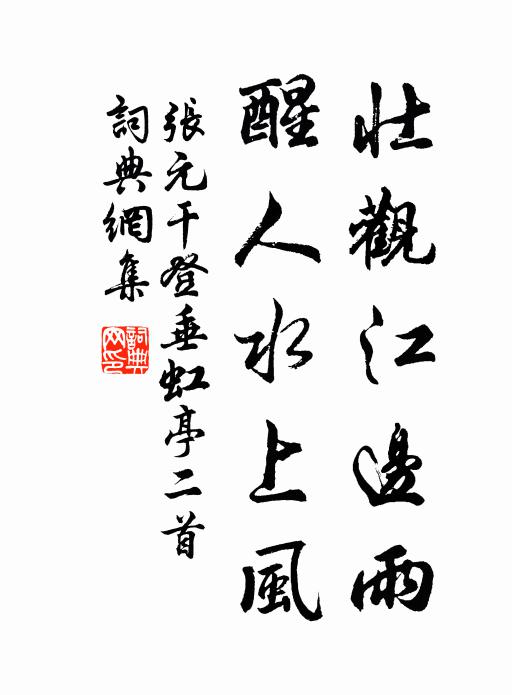 壯觀江邊雨
醒人水上風
張元干登垂虹亭二首
詞典網集
詞典网印